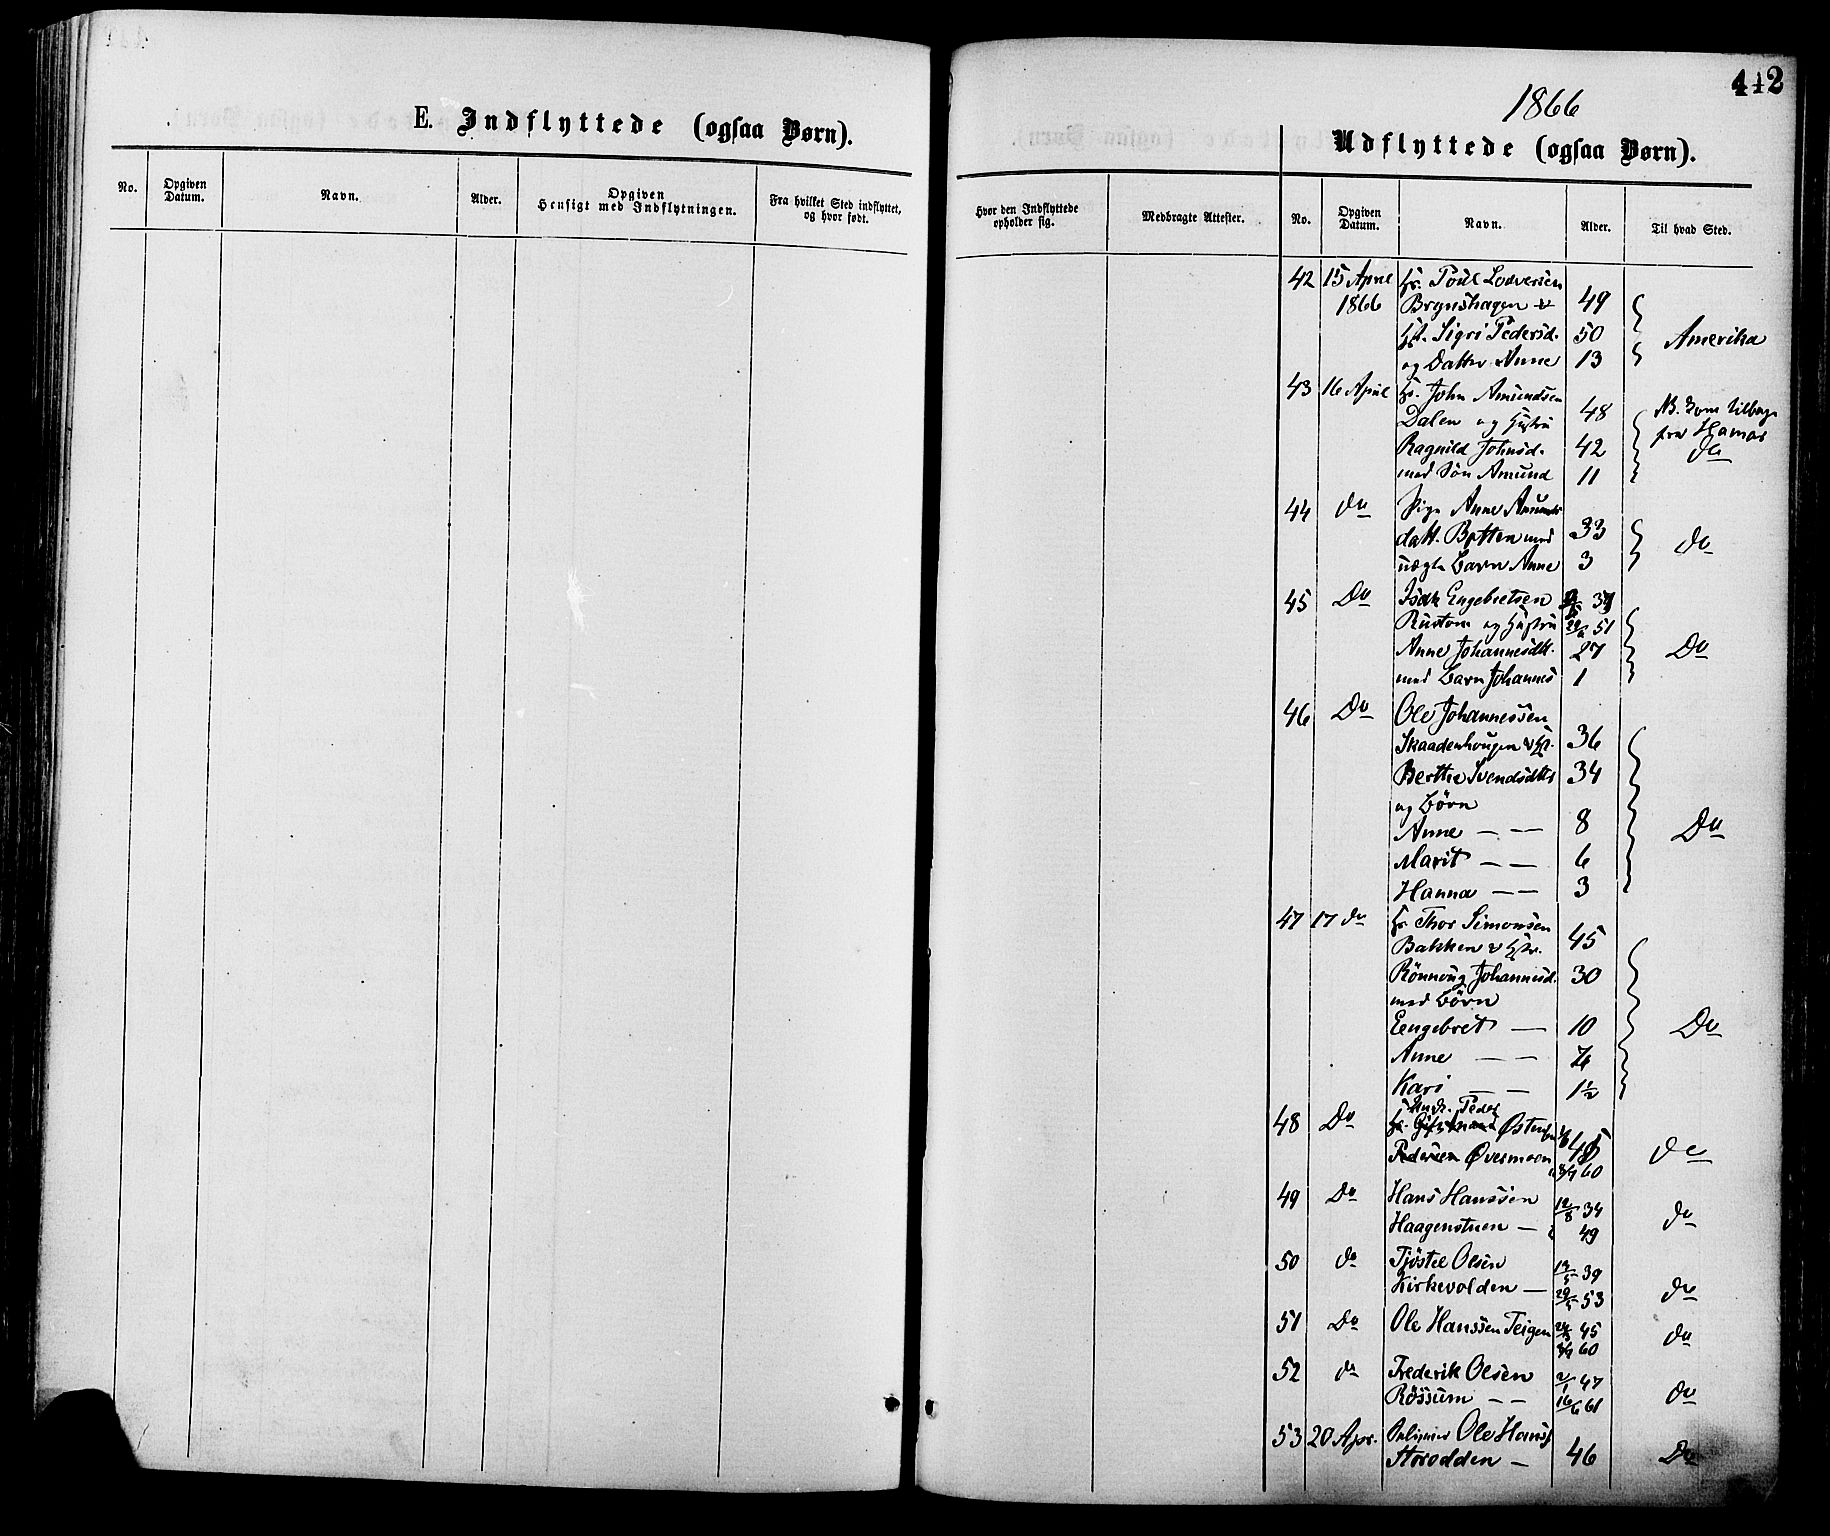 442
1866
E. Indflyttede (ogsaa Børn).
Udflyttede (ogsaa Børn).
No.
Opgiven Datum.
Navn.
Alder.
Opgiven Hensigt med Indflytningen.
Fra hvilket Sted indflyttet, og hvor født.
Hvor den Indflyttede opholder sig.
Medbragte Attester.
No.
Opgiven Datum.
Navn.
Alder.
Til hvad Sted.
42 15 April Gr. Poul Lodversen
1866 Brynshagen 49
Sigri Pedersd. 50 Amerika
og Datter Anne 13
43 16 April Gr. John Amundsen
Dalen og Hustru 48 NB. kom tilbage
fra Hamar
Ragnild Johnsd. 42 do
med Søn Amund 11
44 do Pige Anne Amunds
datt. Botten med 33 do
uægte Barn Anne 3
45 Do Isak Engebretsen
Rustom og Hustru 51
Anne Johannesdtt. 27 Do
med Barn Johannes 1
46 Do Ole Johannessen
Skaadenhougen 36
Berthe Svendsdtt 34
og Børn
Anne — — 8 Do
Marit — — 6
Hanna — — 3
47 17 do Gr. Thor Simonsen
Bakken 45
Rönnoug Johannesd. 30
med Börn
Eengebret — 10 Do
Anne — — 7
Kari — — 1½
Peder
48 Do Østen
Pedersen Øvermoen 60 do
49 Do Hans Hanssen 12/8 34
Haagenstuen — 49 do
50 do Tjöstel Olsen 39
Kirkevolden — 53 do
51 Do Ole Hanssen Teigen 45 do
60
52 do Frederik Olsen 2/1 47
Rössum — — 16/6 61 do
53 20 Apr. Ole Hans
Storodden — 46 Do